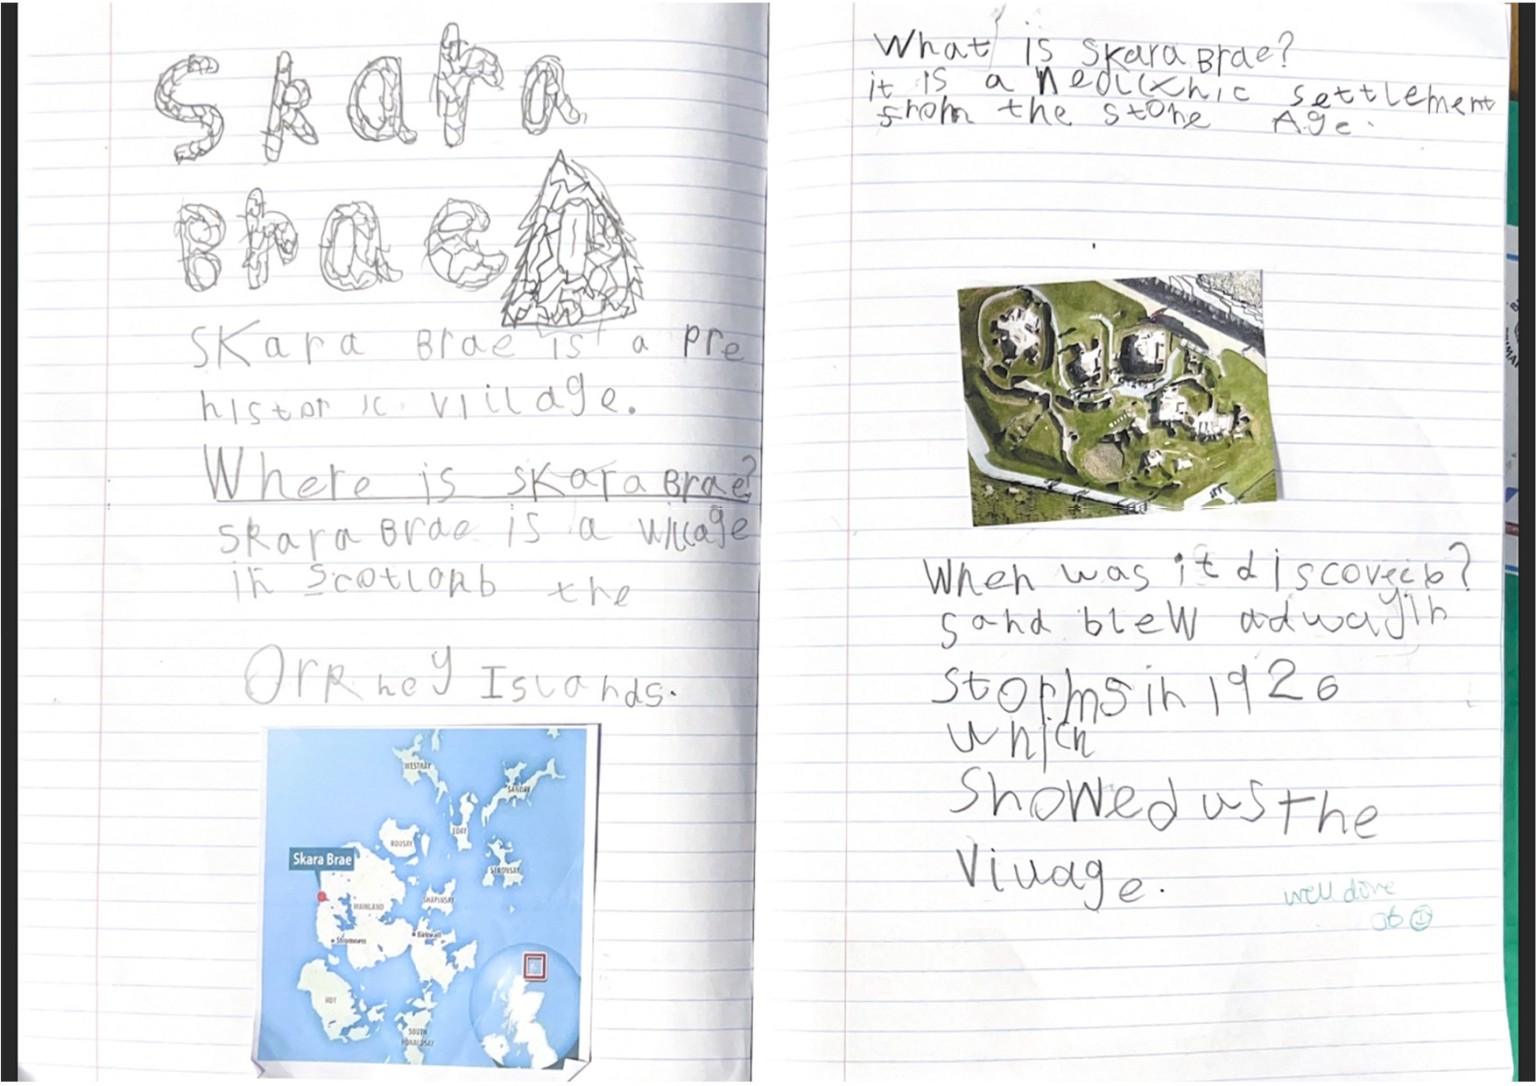 Skara
Brae
Skara Brae is a pre
historic village.
Where is Skara Brae?
Skara Brae is a village
in Scotlanb the
Orkney Islands.
WESTRAY
SANDAY
EDAY
ROUSAY
STRONSAY
Skara Brae
SHAPINSAY
MAINLAND
Stromness
Kirkwall
HOY
SOUTH
RONALDSAY
What is Skara Brae?
it is a Neolithic settlement
from the stone Age.
When was it discoverb?
sand blew adway in
storms in 1926
which
showed us the
Village.
well done